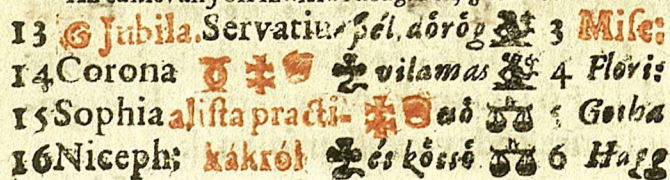 13 G Jubila. Servatius szél, dörög 3 Mise:
14 Corona villamas 4 Floris
15 Sophia alista practi- esö 5 Gotha
16 Niceph; kákról és kössö 6 Hagg